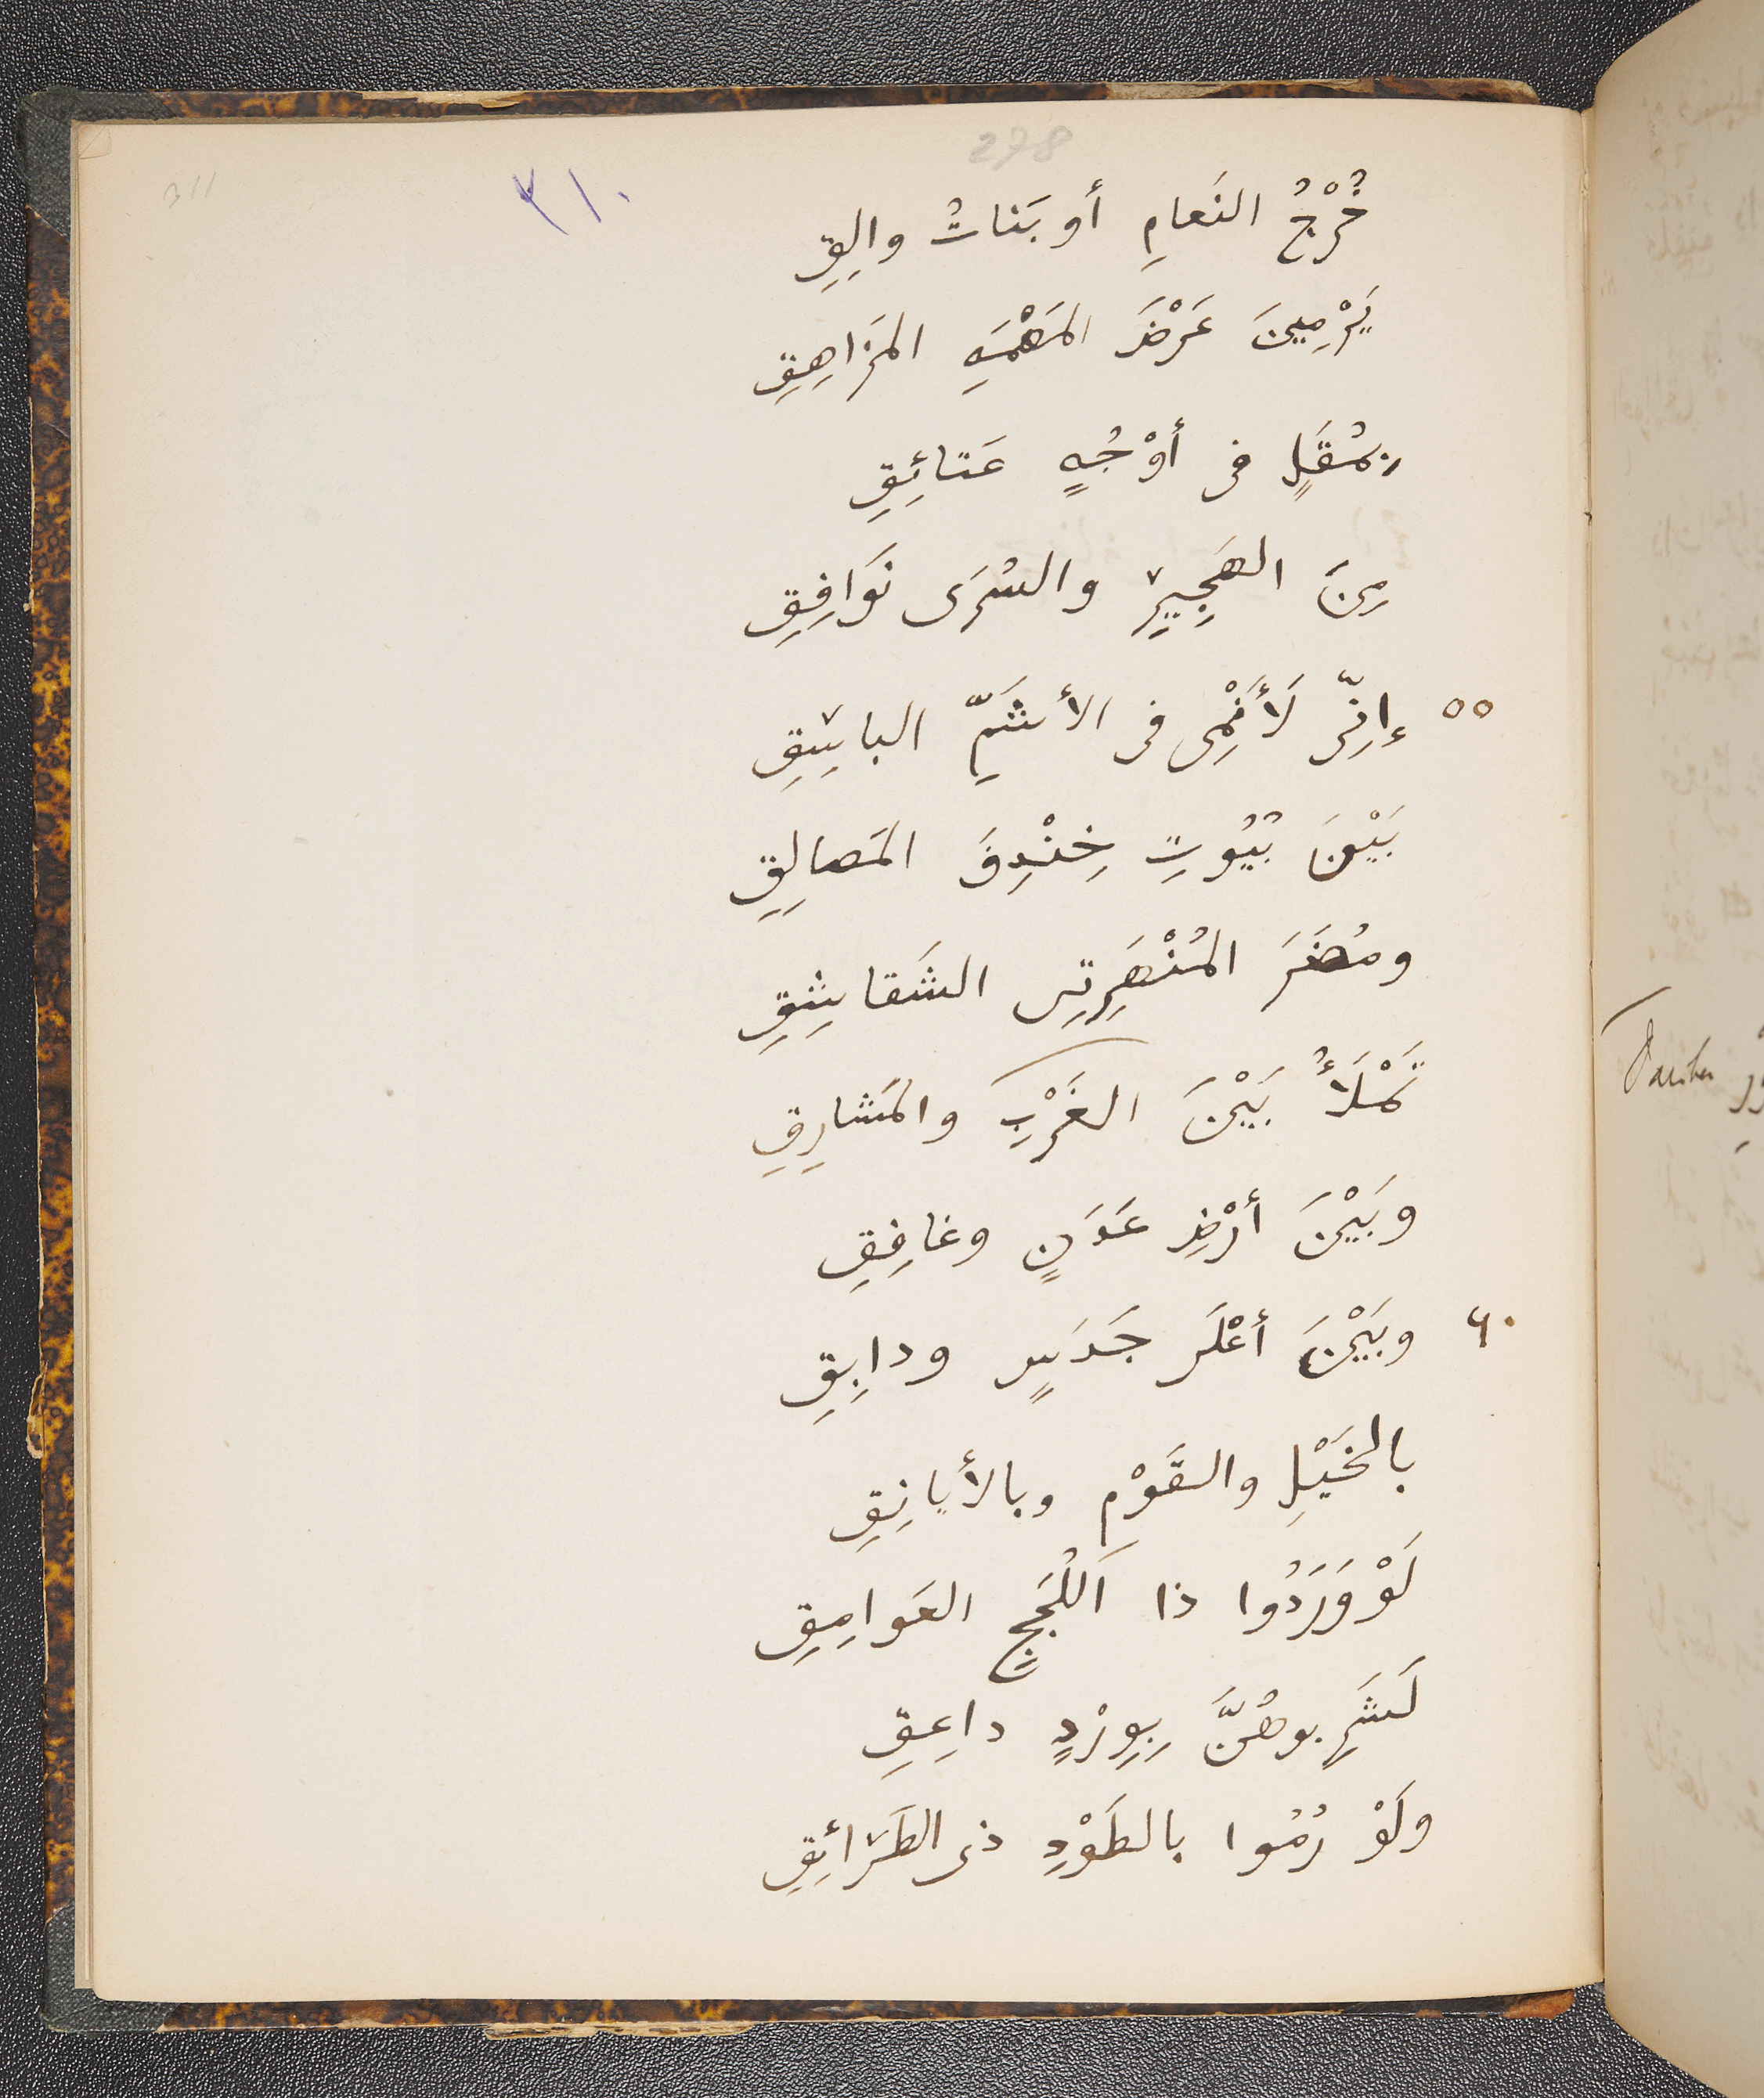 278
٣١٠
311
خُرْجُ النَعامِ أو بَناتُ والِقِ
يَرْمِينَ عَرْضَ المَهْمَهِ المَزاهِقِ
بِمُقَلٍ فى أوْجُهٍ عَتائِقِ
مِنَ الهَجِيرِ والسُرَى نَوَافِقِ
٥٥ إِنِّى لَأَنْمِى فى الأشَمِّ الباسِقِ
بَيْنَ بُيُوتِ خِنْدِفَ المَصالِقِ
ومُضَرَ المُنْهَرِتِى الشَقاشِقِ
تَمْلَأُ بَيْنَ الغَرْبِ والمَشارِقِ
وبَيْنَ أرْضِ عَدَنٍ وغافِقِ
٦٠ وبَيْنَ أعْلَى جَدَسٍ ودابِقِ
بالخَيْلِ والقَوْمِ وبالأيانِقِ
لَوْ وَرَدُوا ذا اَللُجَجِ العَوامِقِ
لَشَرِبوهُنَّ بِوِرْدٍ داعِقِ
ولَوْ رُمُوا بالطَوْدِ ذى الطَرائِقِ